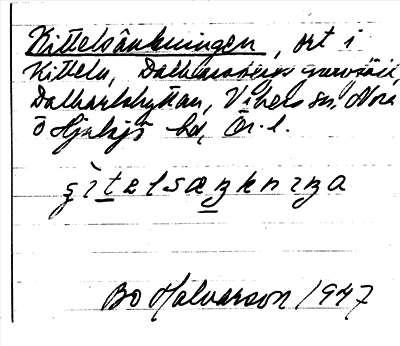 Kittelsänkningen, ort i
Kitteln, Dalkarlsbergs gruvfält,
Dalkarlshyttan, Vikers sn, Nora
o Hjulsjö bd, Ör. l.
çìtelsæŋknıŋa
Bo Halvarson 1947